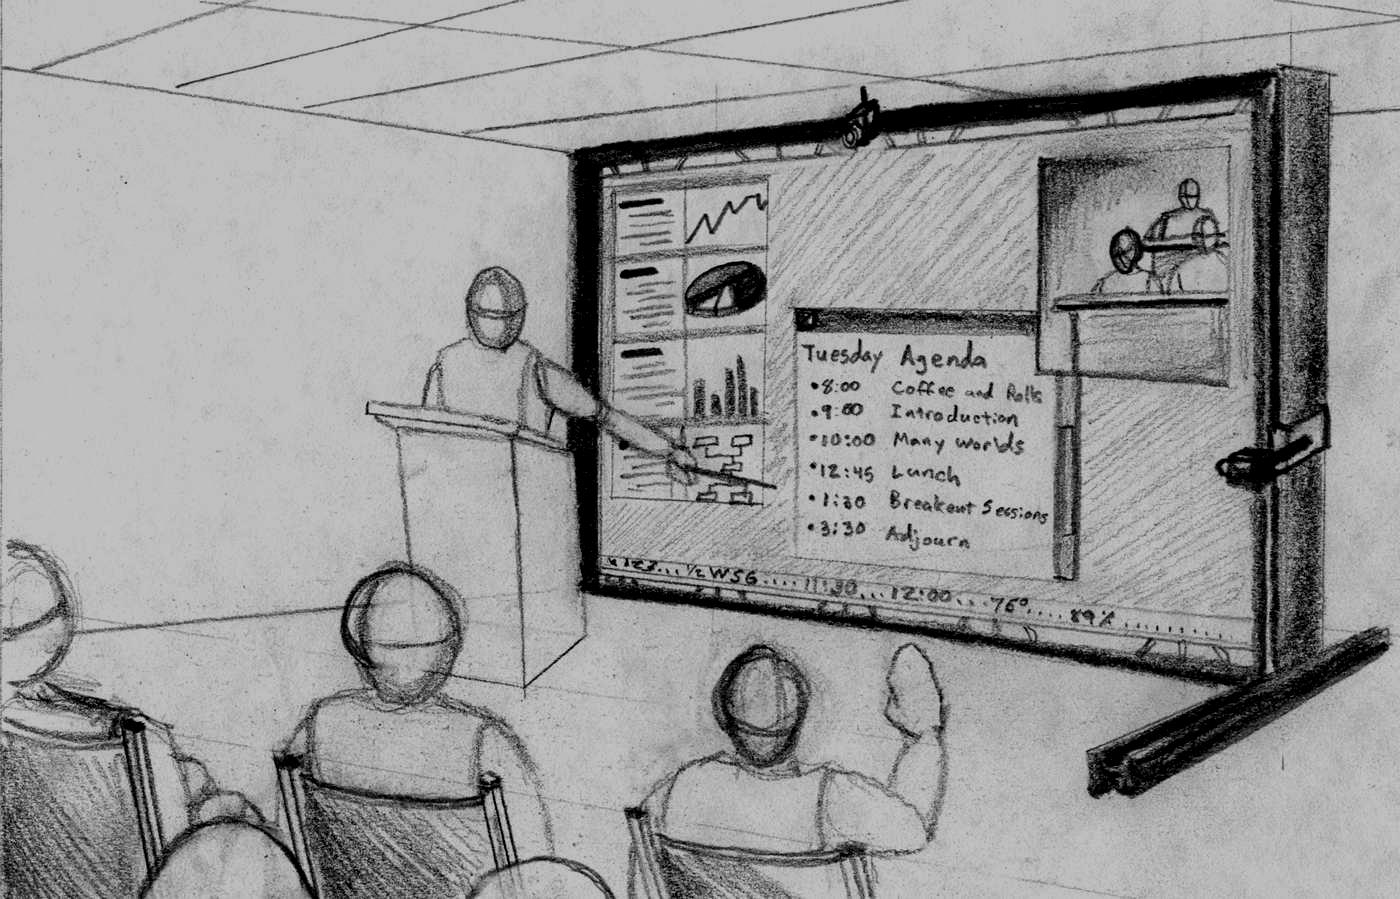 Tuesday Agenda
•8:00 Coffee and Rolls
•9:00 Introduction
•10:00 Many Worlds
•12:45 Lunch
•1:30 Breakout Sessions
•3:30 Adjourn
½ WSG.... 11:30... 12:00... 76°.... 89%